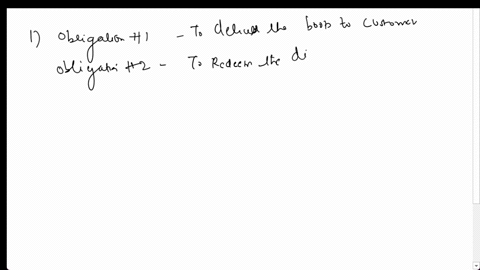 1) Obligation #1 - To deliver the boots to customer
Obligation #2 - To Redeem the di